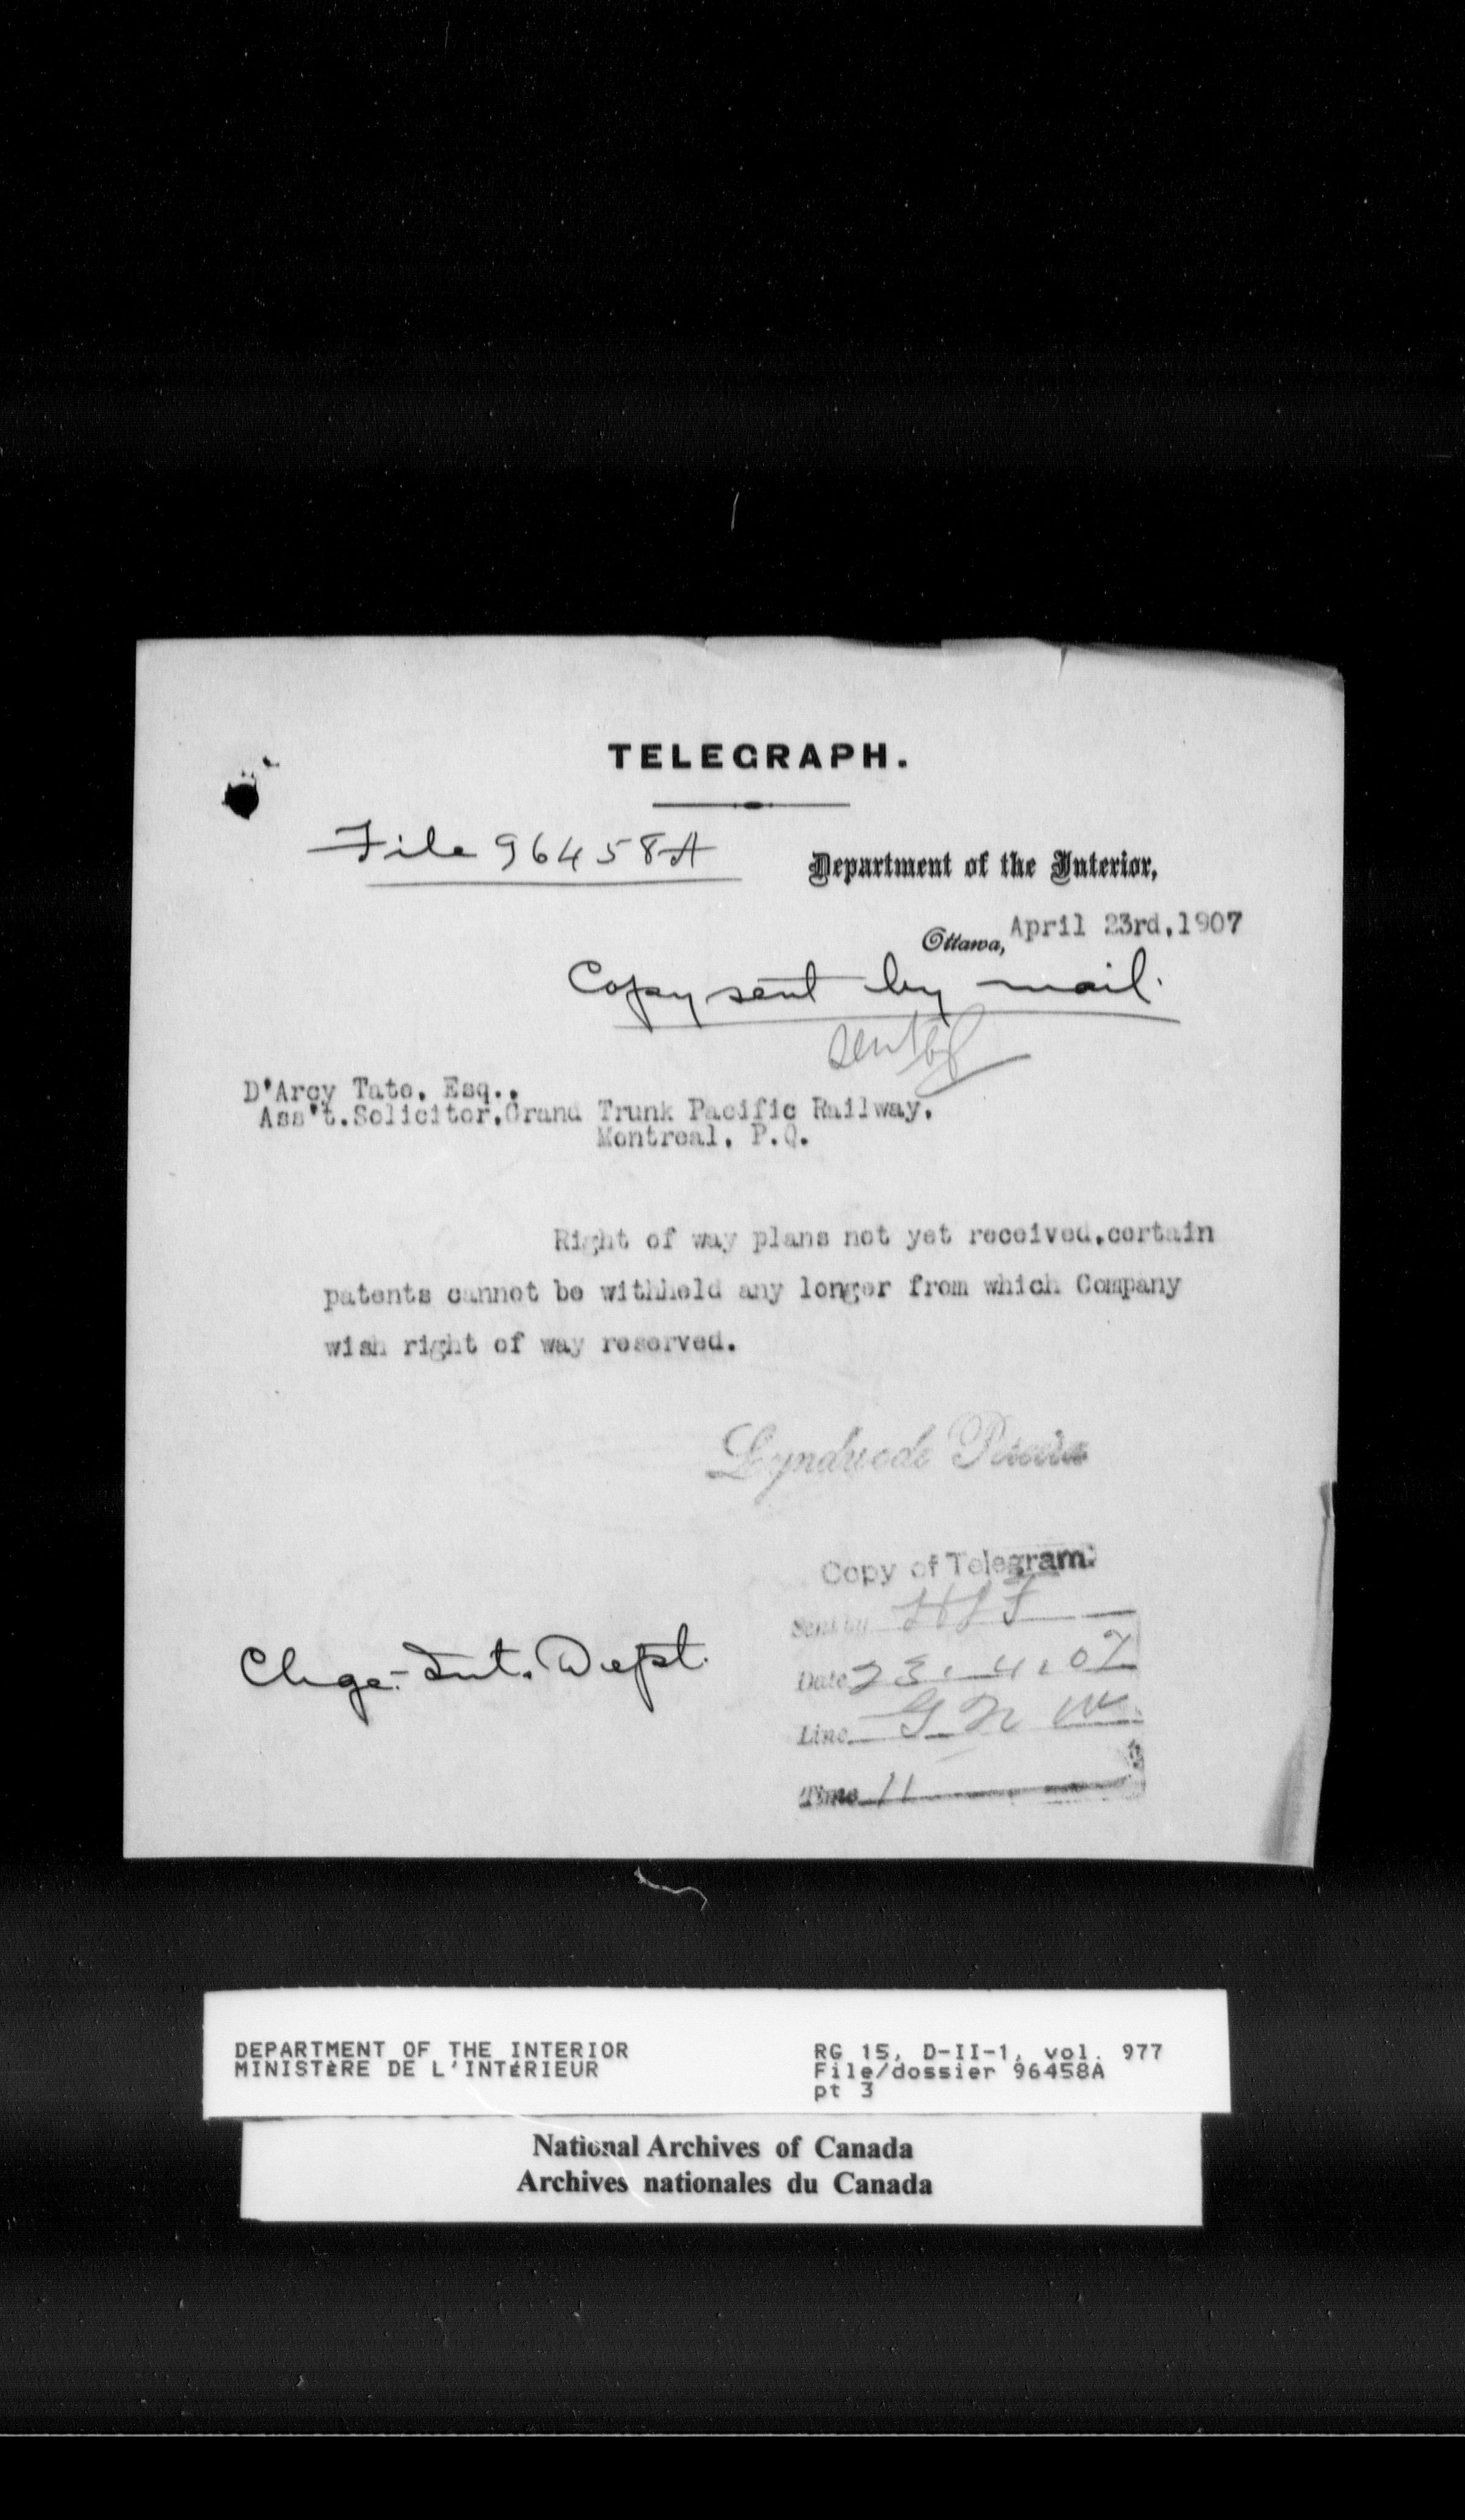 TELEGRAPH.
File 96458A
Department of the Interior,
Ottawa, April 23rd, 1907
Copy sent by mail.
sent
D'Arcy Tate, Esq.,
Ass't.Solicitor,Grand Trunk Pacific Railway,
Montreal, P.Q.
Right of way plans not yet received,certain
patents cannot be withheld any longer from which Company
wish right of way reserved.
Lyndwode Pereira
Copy of Telegram.
Sent by
Date 23.4.07
Line G N W
Time 11
Chge. Int. Dept.
DEPARTMENT OF THE INTERIOR
MINISTÈRE DE L'INTÉRIEUR
RG 15, D-II-1, vol. 977
File/dossier 96458A
pt 3
National Archives of Canada
Archives nationales du Canada